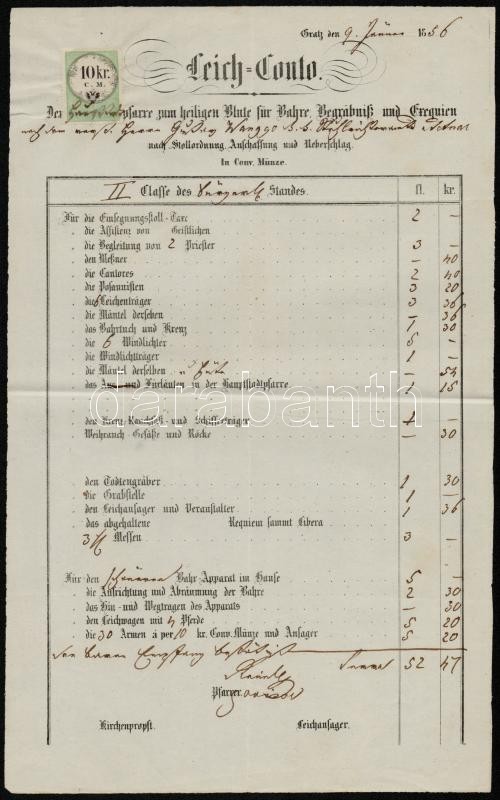 Gratz den 9. Jänner 1856
10 kr.
C. M.
Leich-Conto.
Der Hauptstadtpfarre zum heiligen Blute für Bahre, Begräbniß und Exequien
nach dem verst. Herrn Gustav
nach Stollordnung, Anschaffung und Ueberschlag.
In Conv. Münze.
II Classe des bürgerl. Standes. fl. kr.
Für die Einsegnungsstoll-Taxe 2 —
„ die Assistenz von Geistlichen
„ die Begleitung von 2 Priester 3 —
„ den Meßner — 40
„ die Cantores 2 40
„ die Posaunisten 3 20
„ 6 Leichenträger 3 36
„ die Mäntel derselben — 36
„ das Bahrtuch und Kreuz 1 30
„ die 6 Windlichter 5 —
„ die Windlichtträger 1 —
„ die Mäntel derselben u Hüte — 54
„ das Aus- und Fürläuten in der Hauptstadtpfarre. 1 15
„ den Kreuz- Rauchfaß- und Schifferträger 1 —
Weihrauch Gefäße und Röcke — 30
„ den Todtengräber 1 30
„ die Grabstelle 1 —
„ den Leichansager und Veranstalter 1 36
„ das abgehaltene Requiem sammt Libera
„ 3 Messen 3 —
Für den schwarzen Bahr-Apparat im Hause 5 —
„ die Aufrichtung und Abräumung der Bahre 2 30
„ das Hin- und Wegtragen des Apparats — 30
„ den Leichwagen mit 4 Pferde 5 20
„ die 30 Armen à per 10 kr. Conv. Münze und Ansager 5 20
den baaren Empfang bestätigt
Summa 52 47
Pfarrer
Kirchenpropst. Leichansager.
darabanth